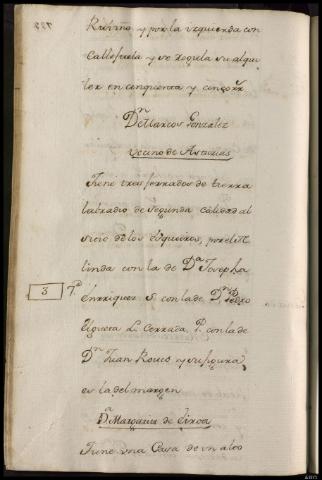 Rutiño y por la izquierda con
Callejuela y se regula su alqui
ler en cinquenta y cinco rr
Dn Marcos Gonzalez
Vecino de Asturias
Tiene tres ferrados de tierra
labradio de segunda calidad al
sitio de los por el L.
linda con la de Da Josepha
8 7a Enrriquez S. con la de Dn Pedro
Figueroa L. Cerrada, P. con la de
Dn Juan Roucs y su figura
es la del margen
Da Margarita de
Tiene una Casa de un alto